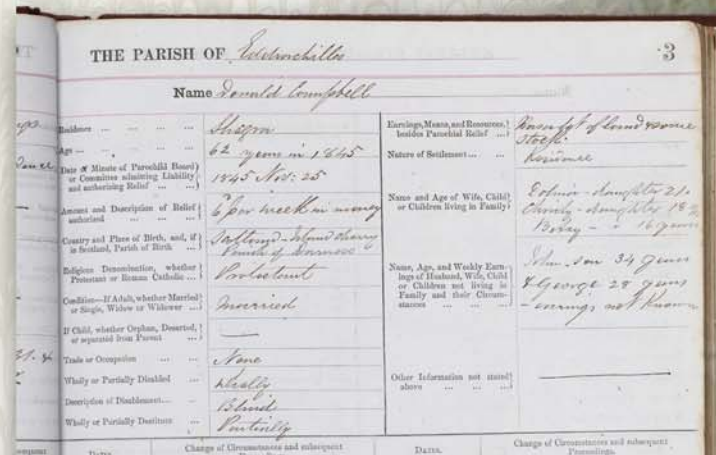 THE PARISH OF Eddrachilles
3
Name Donald Campbell
Residence ... ... ... ...
Age ... ... ... ... 62 years in 1845
Date of Minute of Parochial Board or Committee admitting Liability and authorising Relief ... 1845 Nov: 25
Amount and Description of Relief authorised ... ... 6 per week in money
Country and Place of Birth, and, if in Scotland, Parish of Birth ... Scotland - Island
Parish of
Religious Denomination, whether Protestant or Roman Catholic ... Protestant
Condition—If Adult, whether Married or Single, Widow or Widower ... Married
If Child, whether Orphan, Deserted, or separated from Parent ... —
Trade or Occupation ... ... None
Wholly or Partially Disabled ... Wholly
Description of Disablement... ... Blind
Wholly or Partially Destitute ... Partially
Earnings, Means, and Resources, besides Parochial Relief ... of Land & some
Stock
Nature of Settlement ... ... Residence
Name and Age of Wife, Child or Children living in Family - daughter 21
Christy - daughter 18
Betsy - " 16 years
Name, Age, and Weekly Earnings of Husband, Wife, Child or Children not living in Family and their Circumstances ... ... ... John son 34 years
& George 28 years
- earnings not known
Other Information not stated above ... ... ...
Dates.
Change of Circumstances and subsequent
Dates.
Change of Circumstances and subsequent
Proceedings.